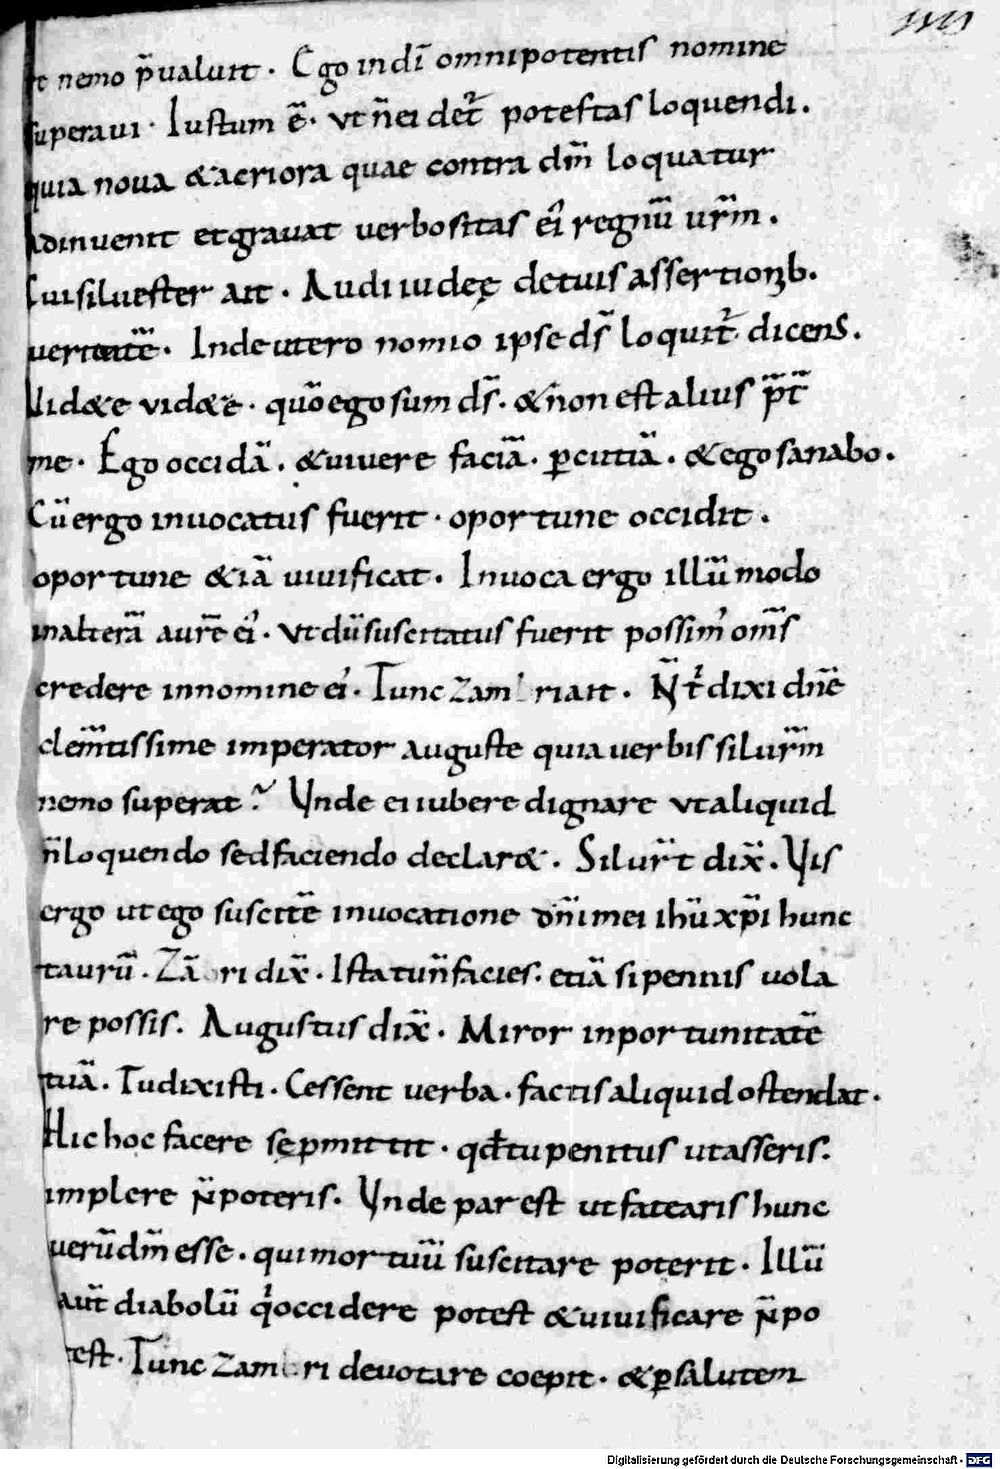 et nemo p̄ualuit · Ego in dī omnipotentis nomine
superaui · Iustum ē · vt n̄ ei det᷑ potestas loquendi .
quia noua & acriora quae contra dm̄ loquatur
adinuenit et grauat uerbositas ei᷒ regnū ur̄m .
Cui siluester ait . Audi iudeę de tuis assertionib .
ueritatē . Inde utero nomio ipse ds̄ loquit᷑ dicens .
Uid&e vid&e · quō ego sum ds̄ . & non est alius p̄t̄
me . Ego occidā . & uiuere faciā . ꝑcutiā . & ego sanabo .
Cū ergo inuocatus fuerit · oportune occidit .
oportune & iā uiuificat . Inuoca ergo illū modo
in alterā aurē ei᷒ . vt dū suscitatus fuerit possim᷒ om̄s
credere in nomine ei᷒ . Tunc zam ri ait . N̄t᷑ dixi dn̄e
clem̄tissime imperator auguste quia uerbis silur̄m
nemo superat ? Unde ei iubere dignare vt aliquid
n̄ loquendo sed faciendo declar& . Silur̄t dix̄ . Uis
ergo ut ego suscitē inuocatione dn̄i mei ihū xp̄i hunc
taurū . Zā ri dix̄ . Ista tun̄ facies . etiā si pennis uola
re possis . Augustus dix̄ . Miror inportunitatē
tuā . Tu dixisti . Cessent uerba . factis aliquid ostendat .
Hic hoc facere sę pmittit · qđ tu penitus ut asseris .
implere n̄ poteris . Unde par est ut fatearis hunc
uerū dm̄ esse . qui mortuū suscitare poterit . Illū
aut̄ diabolū q᷒ occidere potest & uiuificare n̄ po
test . Tunc zam ri deuotare coepit . & ꝑ salutem
Digitalisierung gefördert durch die Deutsche Forschungsgemeinschaft - DFG